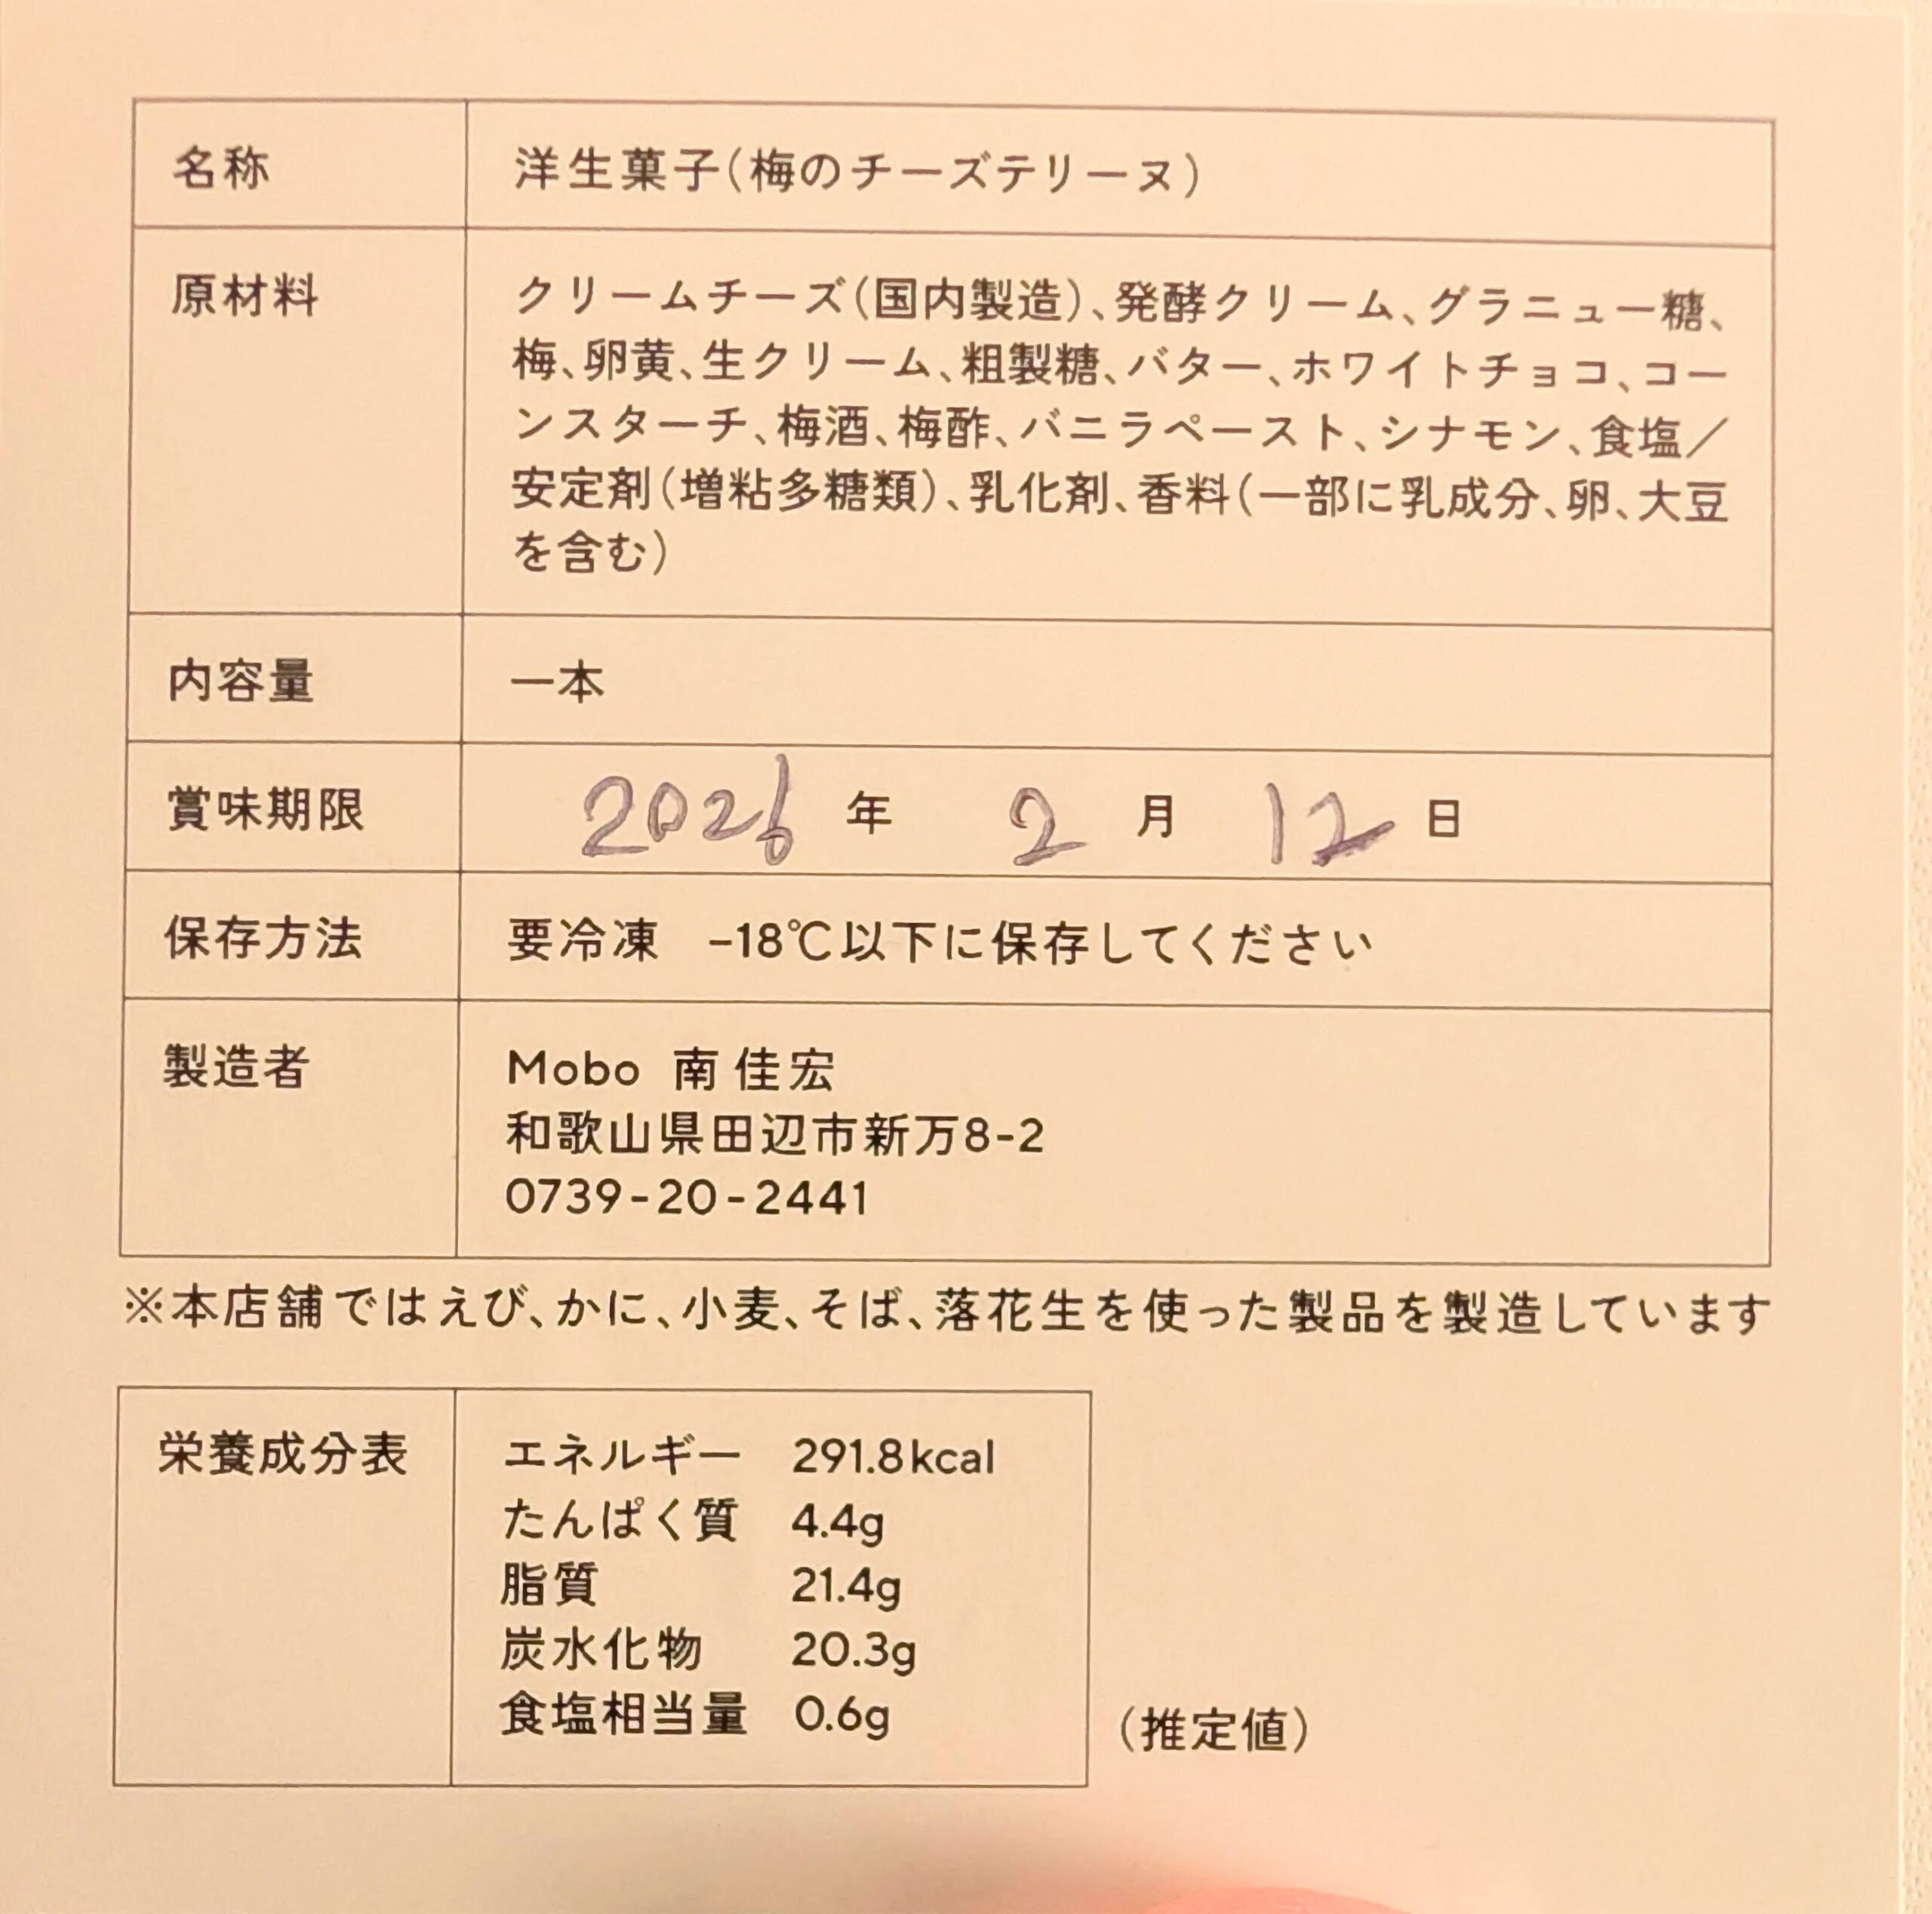 名称 洋生菓子(梅のチーズテリーヌ)
原材料 クリームチーズ(国内製造)、発酵クリーム、グラニュー糖、
梅、卵黄、生クリーム、粗製糖、バター、ホワイトチョコ、コー
ンスターチ、梅酒、梅酢、バニラペースト、シナモン、食塩／
安定剤(増粘多糖類)、乳化剤、香料(一部に乳成分、卵、大豆
を含む)
内容量 一本
賞味期限 2026 年 2 月 12 日
保存方法 要冷凍 -18℃以下に保存してください
製造者 Mobo 南 佳宏
和歌山県田辺市新万8-2
0739-20-2441
※本店舗ではえび、かに、小麦、そば、落花生を使った製品を製造しています
栄養成分表 エネルギー 291.8kcal
たんぱく質 4.4g
脂質 21.4g
炭水化物 20.3g
食塩相当量 0.6g (推定値)